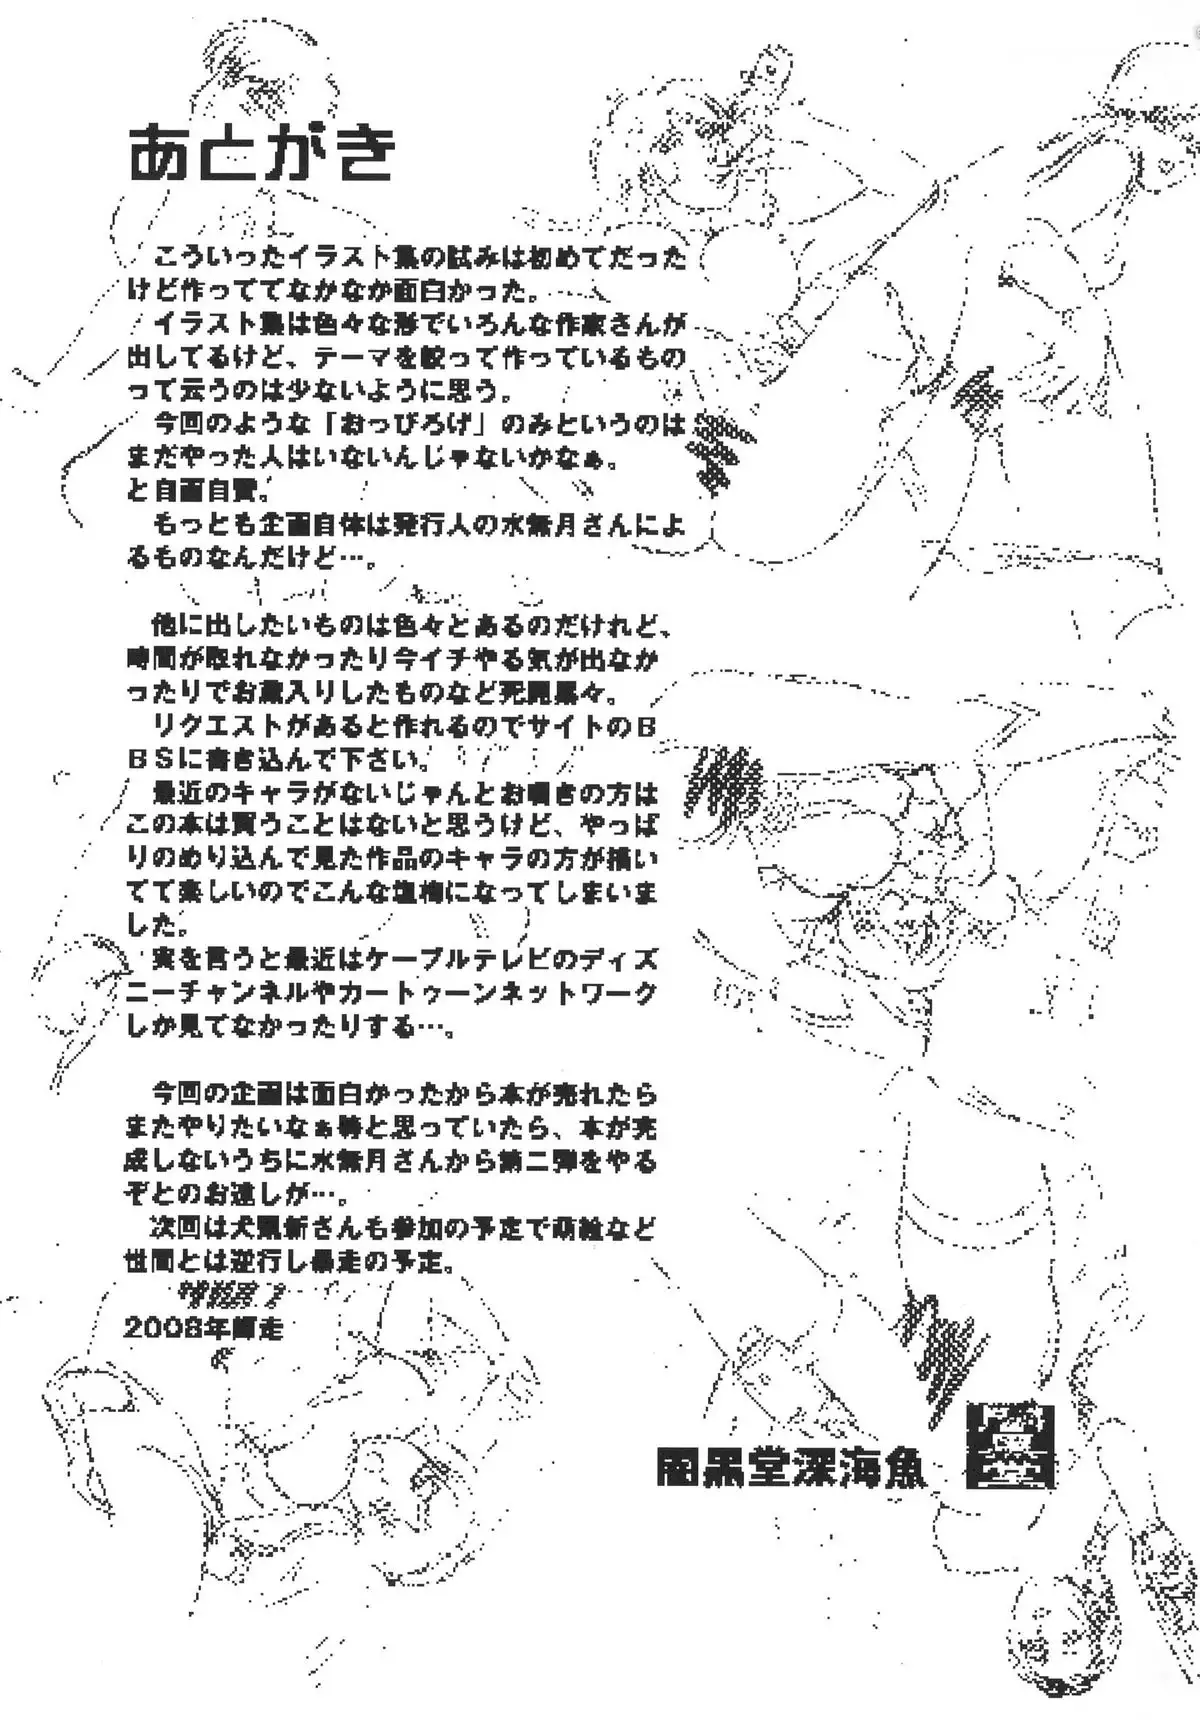 あとがき
こういったイラスト集の試みは初めてだった
けど作っててなかなか面白かった。
イラスト集は色々な形でいろんな作家さんが
出してるけど、テーマを絞って作っているもの
って云うのは少ないように思う。
今回のような「おっぴろげ」のみというのは
まだやった人はいないんじゃないかなぁ。
と自画自賛。
もっとも企画自体は発行人の水無月さんによ
るものなんだけど…。
他に出したいものは色々とあるのだけれど、
時間が取れなかったり今イチやる気が出なか
ったりでお蔵入りしたものなど死屍累々。
リクエストがあると作れるのでサイトのB
BSに書き込んで下さい。
最近のキャラがないじゃんとお嘆きの方は
この本は買うことはないと思うけど、やっぱ
りのめり込んで見た作品のキャラの方が描い
てて楽しいのでこんな塩梅になってしまいま
した。
実を言うと最近はケーブルテレビのディズ
ニーチャンネルやカートゥーンネットワーク
しか見てなかったりする…。
今回の企画は面白かったから本が売れたら
またやりたいなぁ等と思っていたら、本が完
成しないうちに水無月さんから第二弾をやる
ぞとのお達しが…。
次回は犬凰新さんも参加の予定で萌絵など
世間とは逆行し暴走の予定。
2008年師走
闇黒堂深海魚